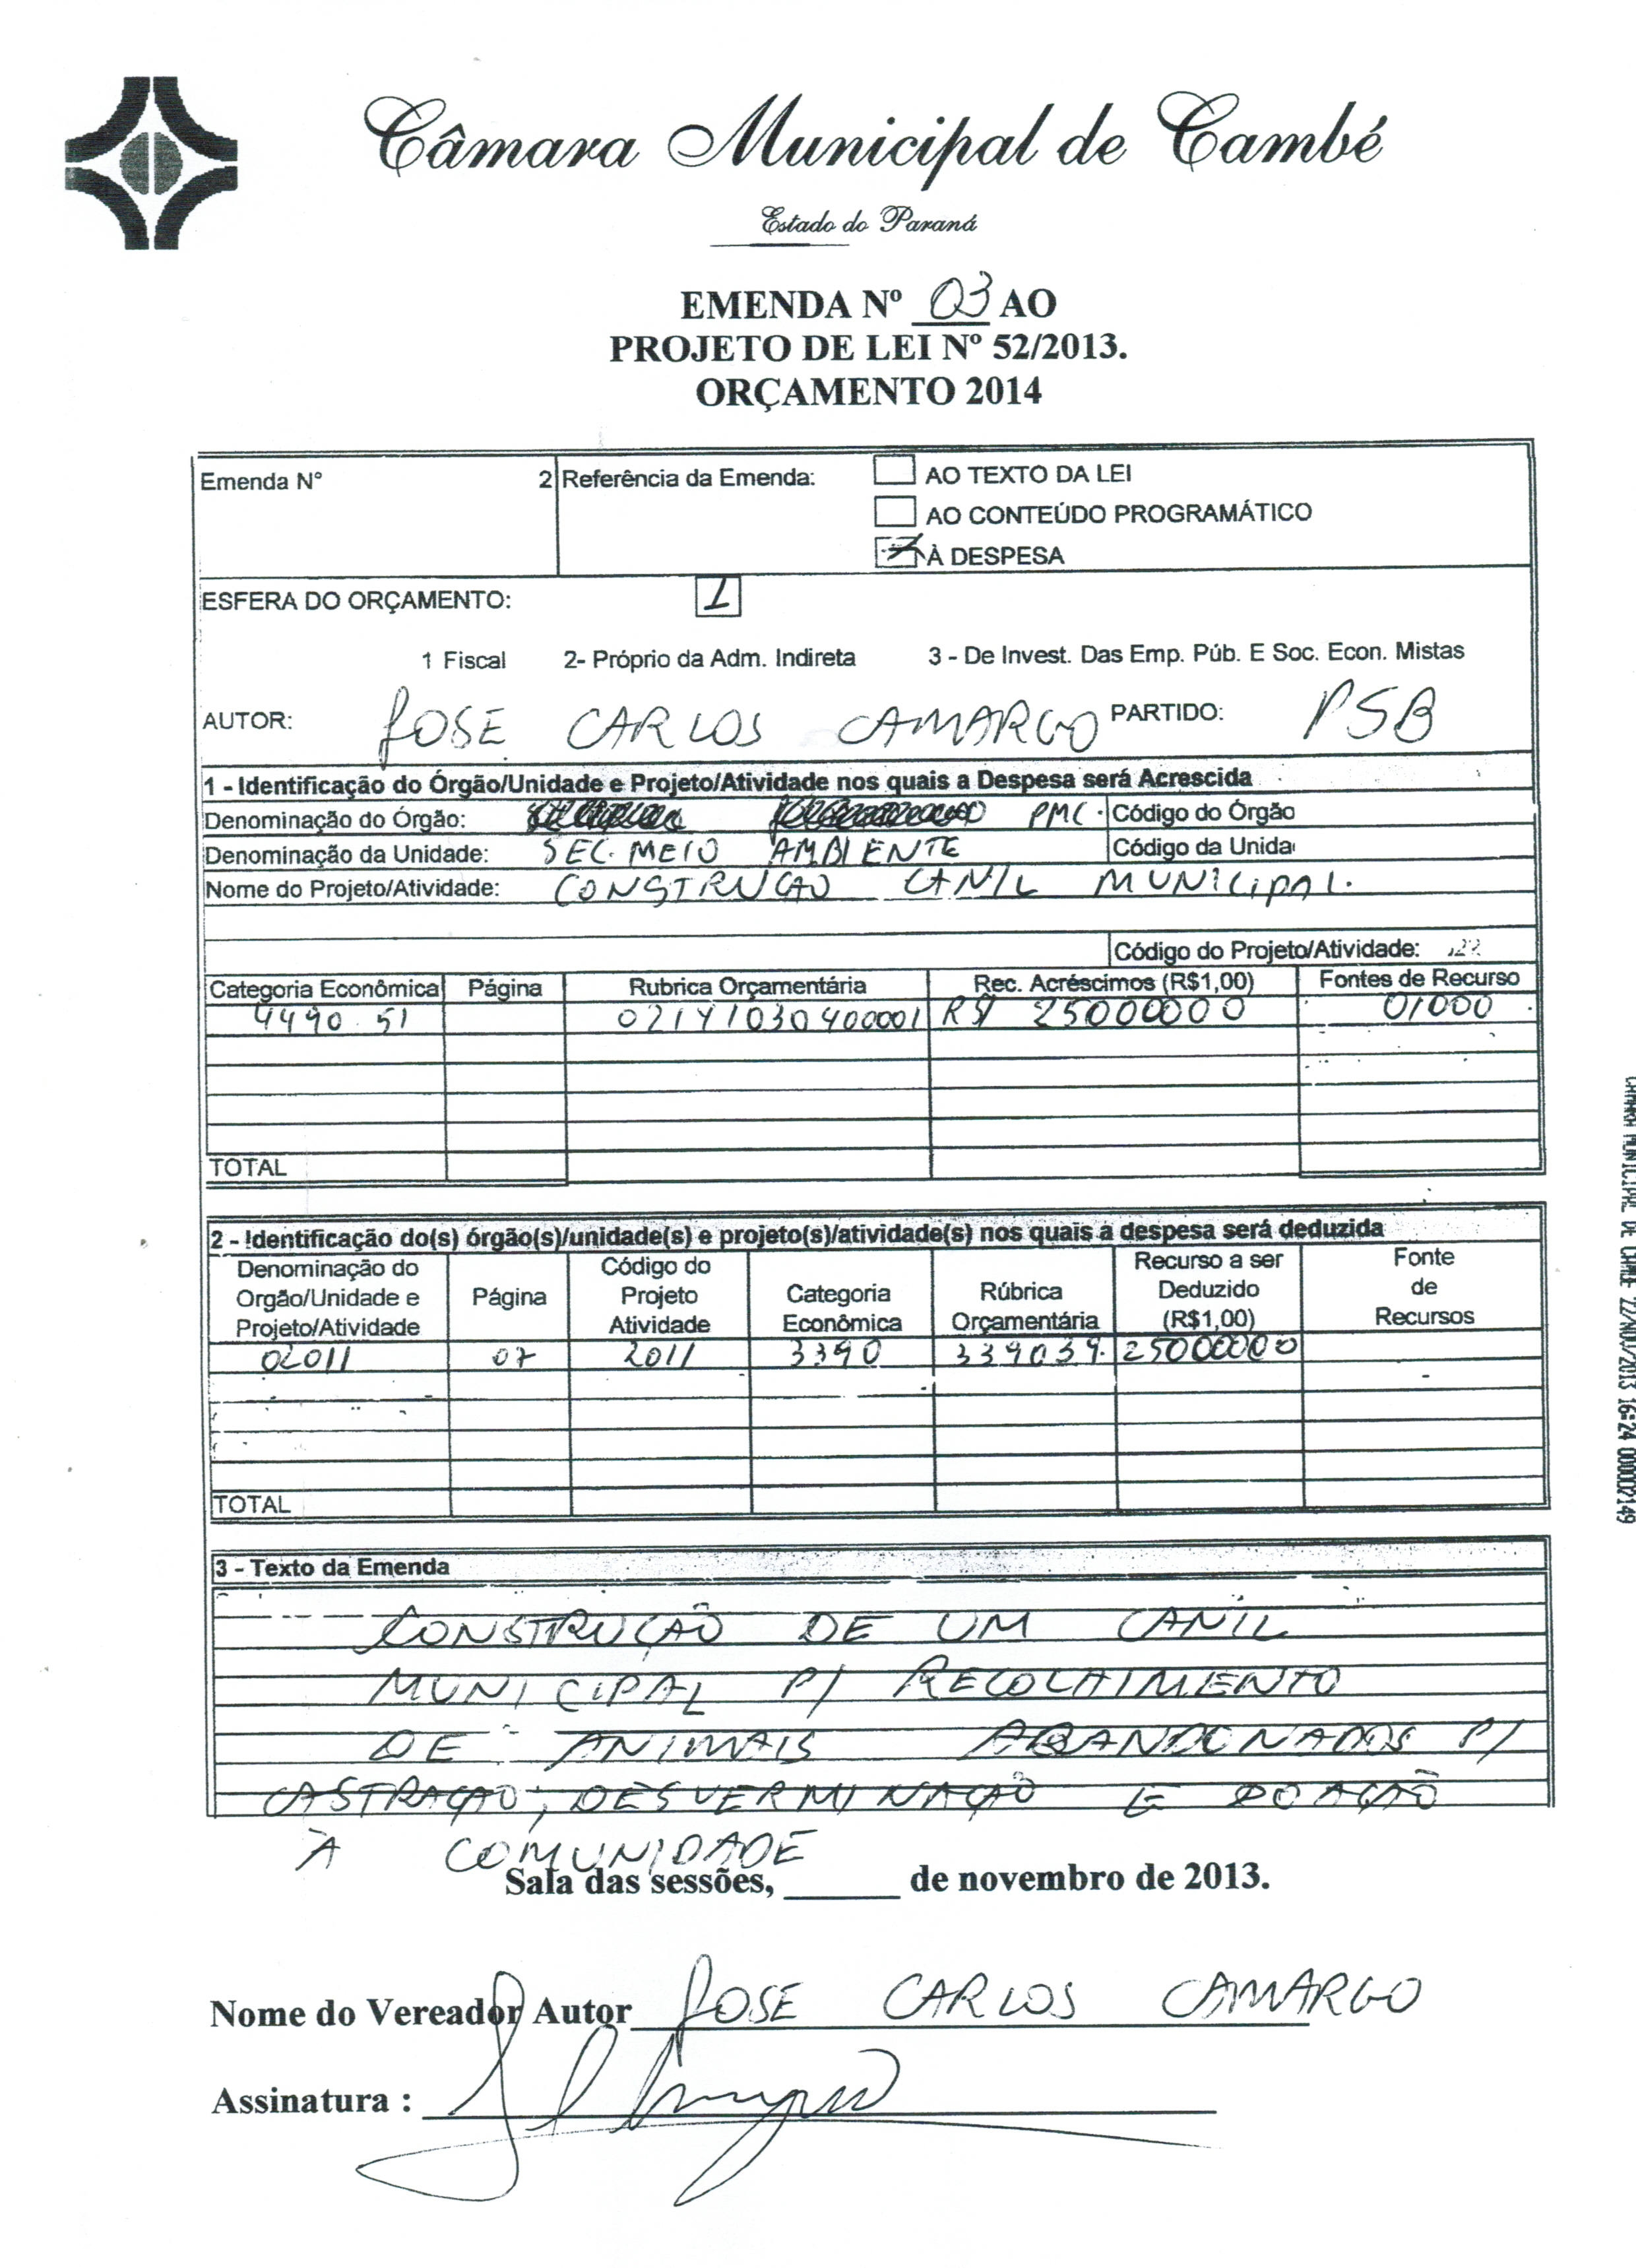 Câmara Municipal de Cambé
Estado do Paraná
EMENDA Nº 03 AO
PROJETO DE LEI Nº 52/2013.
ORÇAMENTO 2014
Emenda N° 2 Referência da Emenda: AO TEXTO DA LEI
AO CONTEÚDO PROGRAMÁTICO
À DESPESA
ESFERA DO ORÇAMENTO: 1
1 Fiscal 2- Próprio da Adm. Indireta 3 - De Invest. Das Emp. Púb. E Soc. Econ. Mistas
AUTOR: JOSE CARLOS CAMARGO PARTIDO: PSB
1 - Identificação do Órgão/Unidade e Projeto/Atividade nos quais a Despesa será Acrescida
Denominação do Órgão: PMC. Código do Órgão
Denominação da Unidade: SEC. MEIO AMBIENTE Código da Unida
Nome do Projeto/Atividade: CONSTRUÇAO CANIL MUNICIPAL.
Código do Projeto/Atividade:
Categoria Econômica Página Rubrica Orçamentária Rec. Acréscimos (R$1,00) Fontes de Recurso
4490.51 02141030400001 R$ 25000000 01000
TOTAL
2 - Identificação do(s) órgão(s)/unidade(s) e projeto(s)/atividade(s) nos quais a despesa será deduzida
Denominação do Código do Recurso a ser Fonte
Orgão/Unidade e Página Projeto Categoria Rúbrica Deduzido de
Projeto/Atividade Atividade Econômica Orçamentária (R$1,00) Recursos
02011 07 2011 3390 339039. 25000000
TOTAL
3 - Texto da Emenda
CONSTRUÇÃO DE UM CANIL
MUNICIPAL P/ RECOLHIMENTO
DE ANIMAIS ABANDONADOS P/
CASTRAÇÃO, DESVERMINAÇÃO E DOAÇÃO
À COMUNIDADE
Sala das sessões, ______ de novembro de 2013.
Nome do Vereador Autor JOSE CARLOS CAMARGO
Assinatura :
CAMARA MUNICIPAL DE CAMBE 22/NOV/2013 16:24 000002149